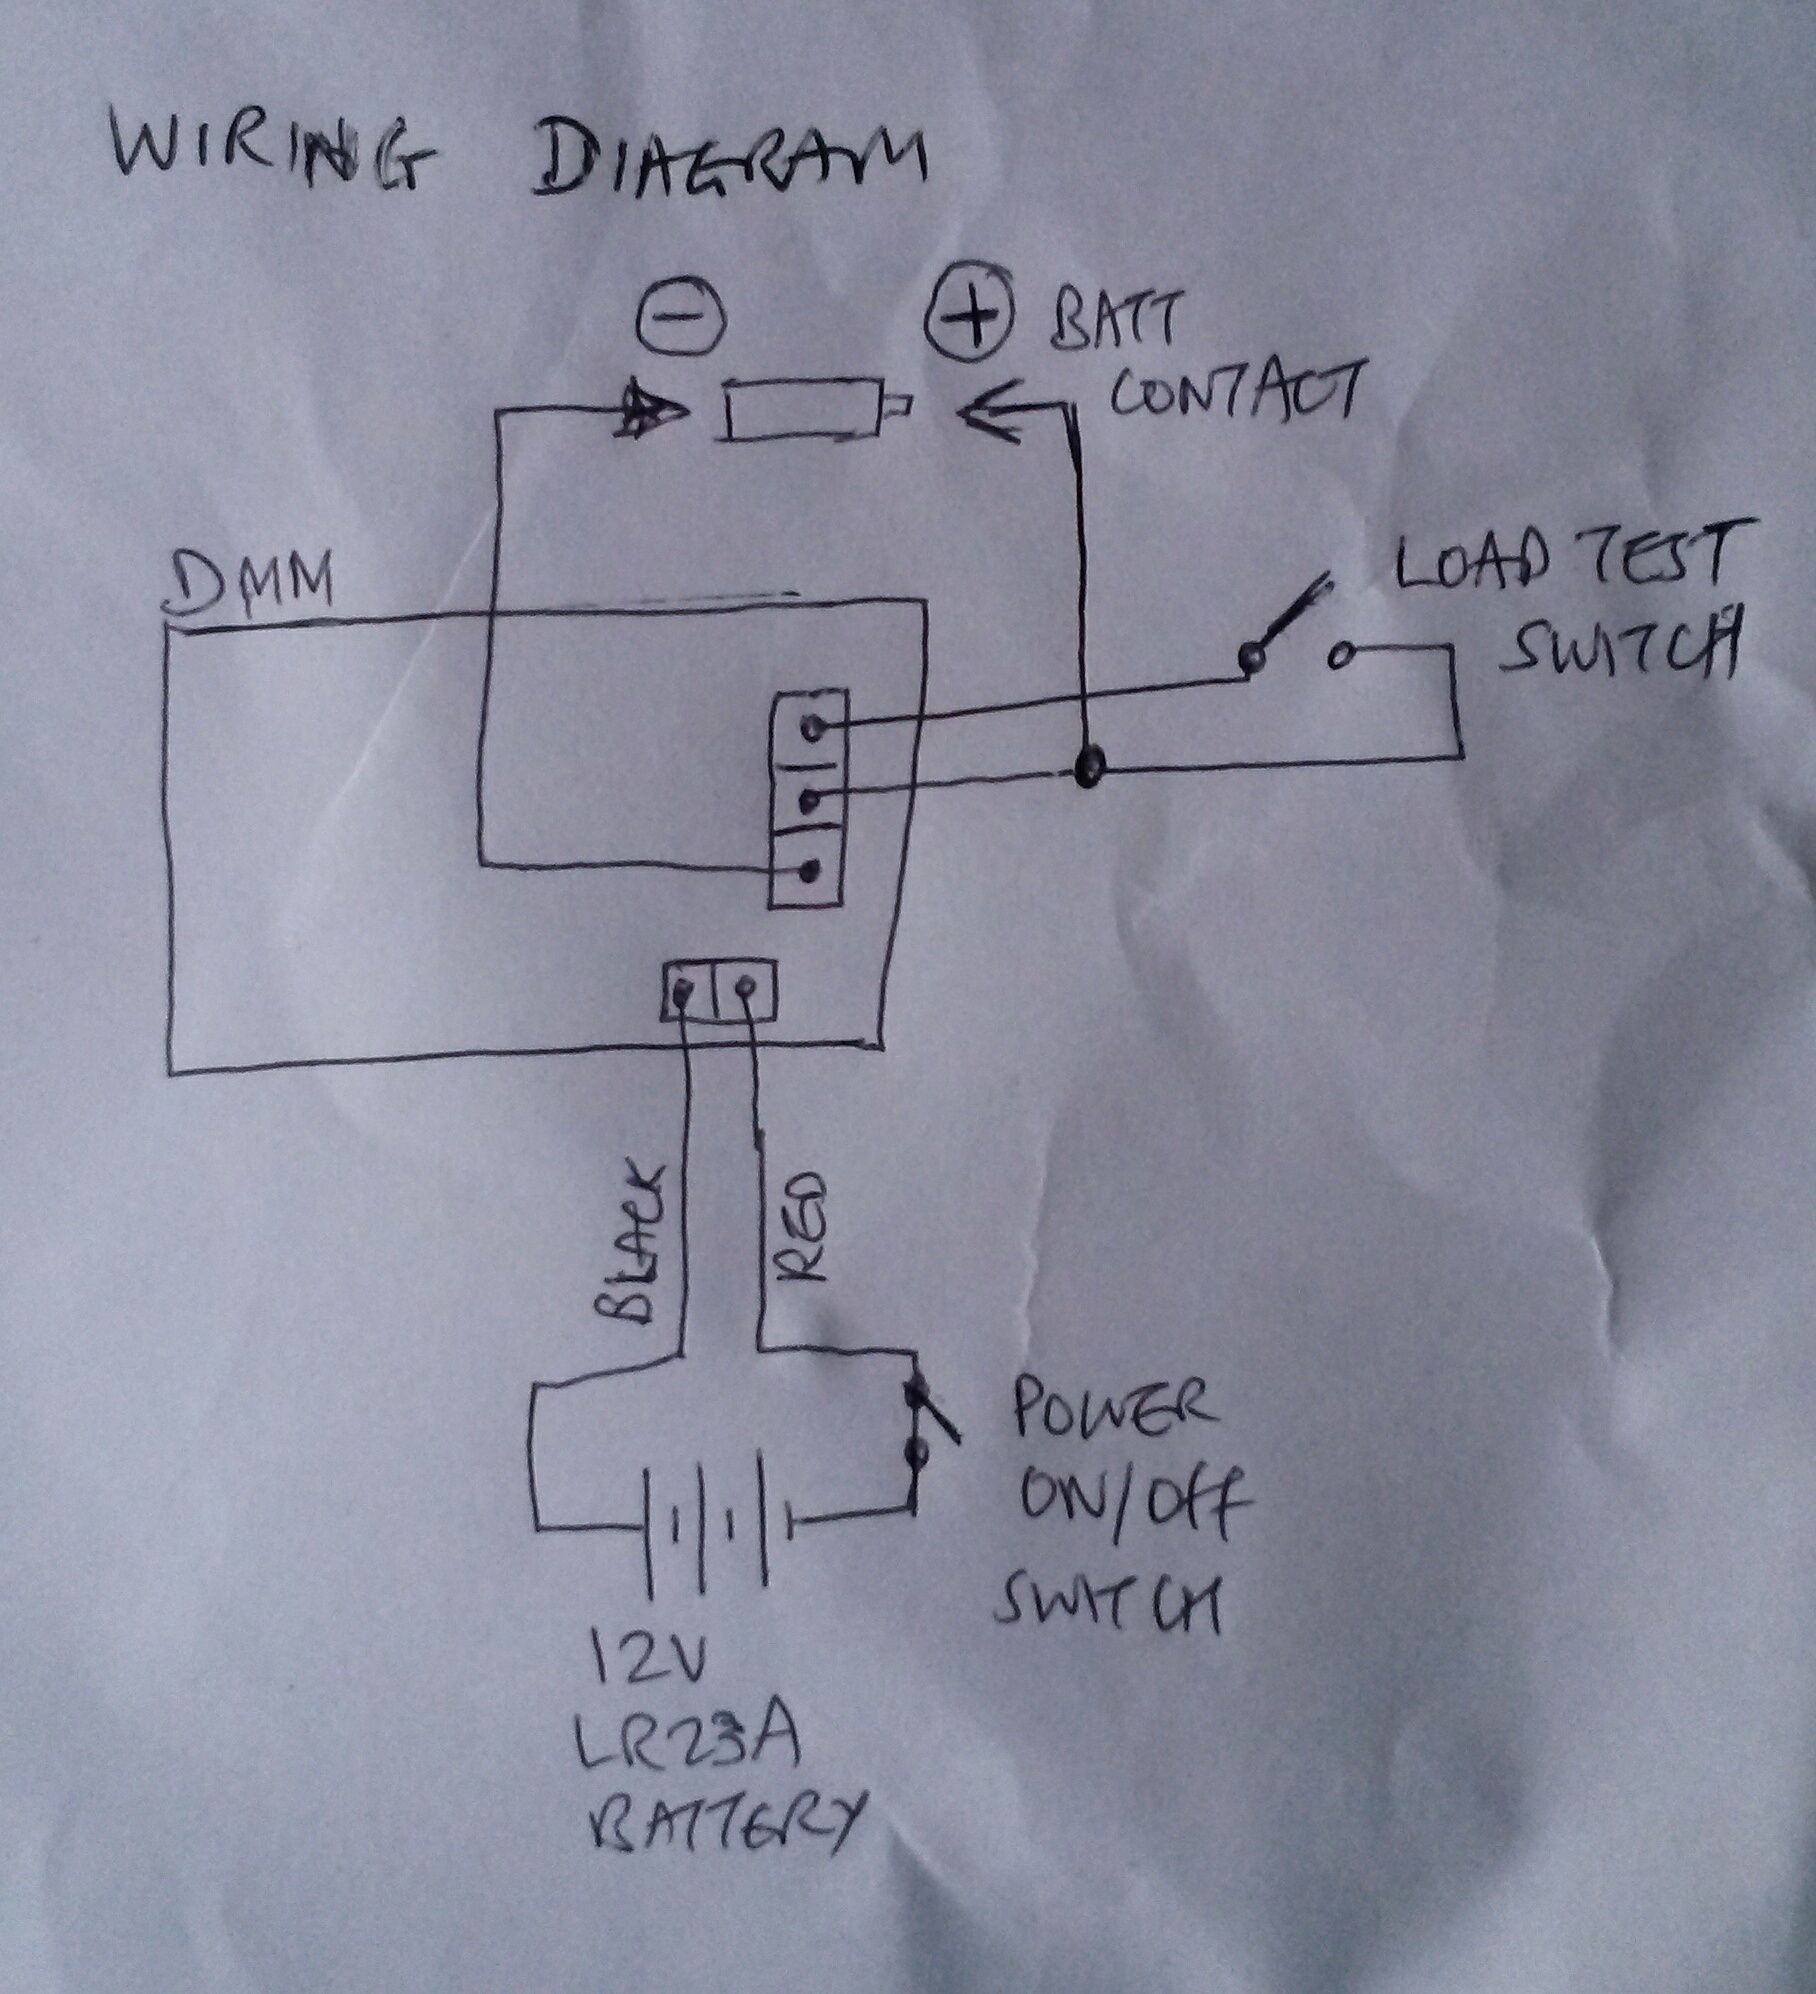 WIRING DIAGRAM
⊖ ⊕ BATT
CONTACT
DMM
LOAD TEST
SWITCH
BLACK
RED
POWER
ON/OFF
SWITCH
12V
LR23A
BATTERY